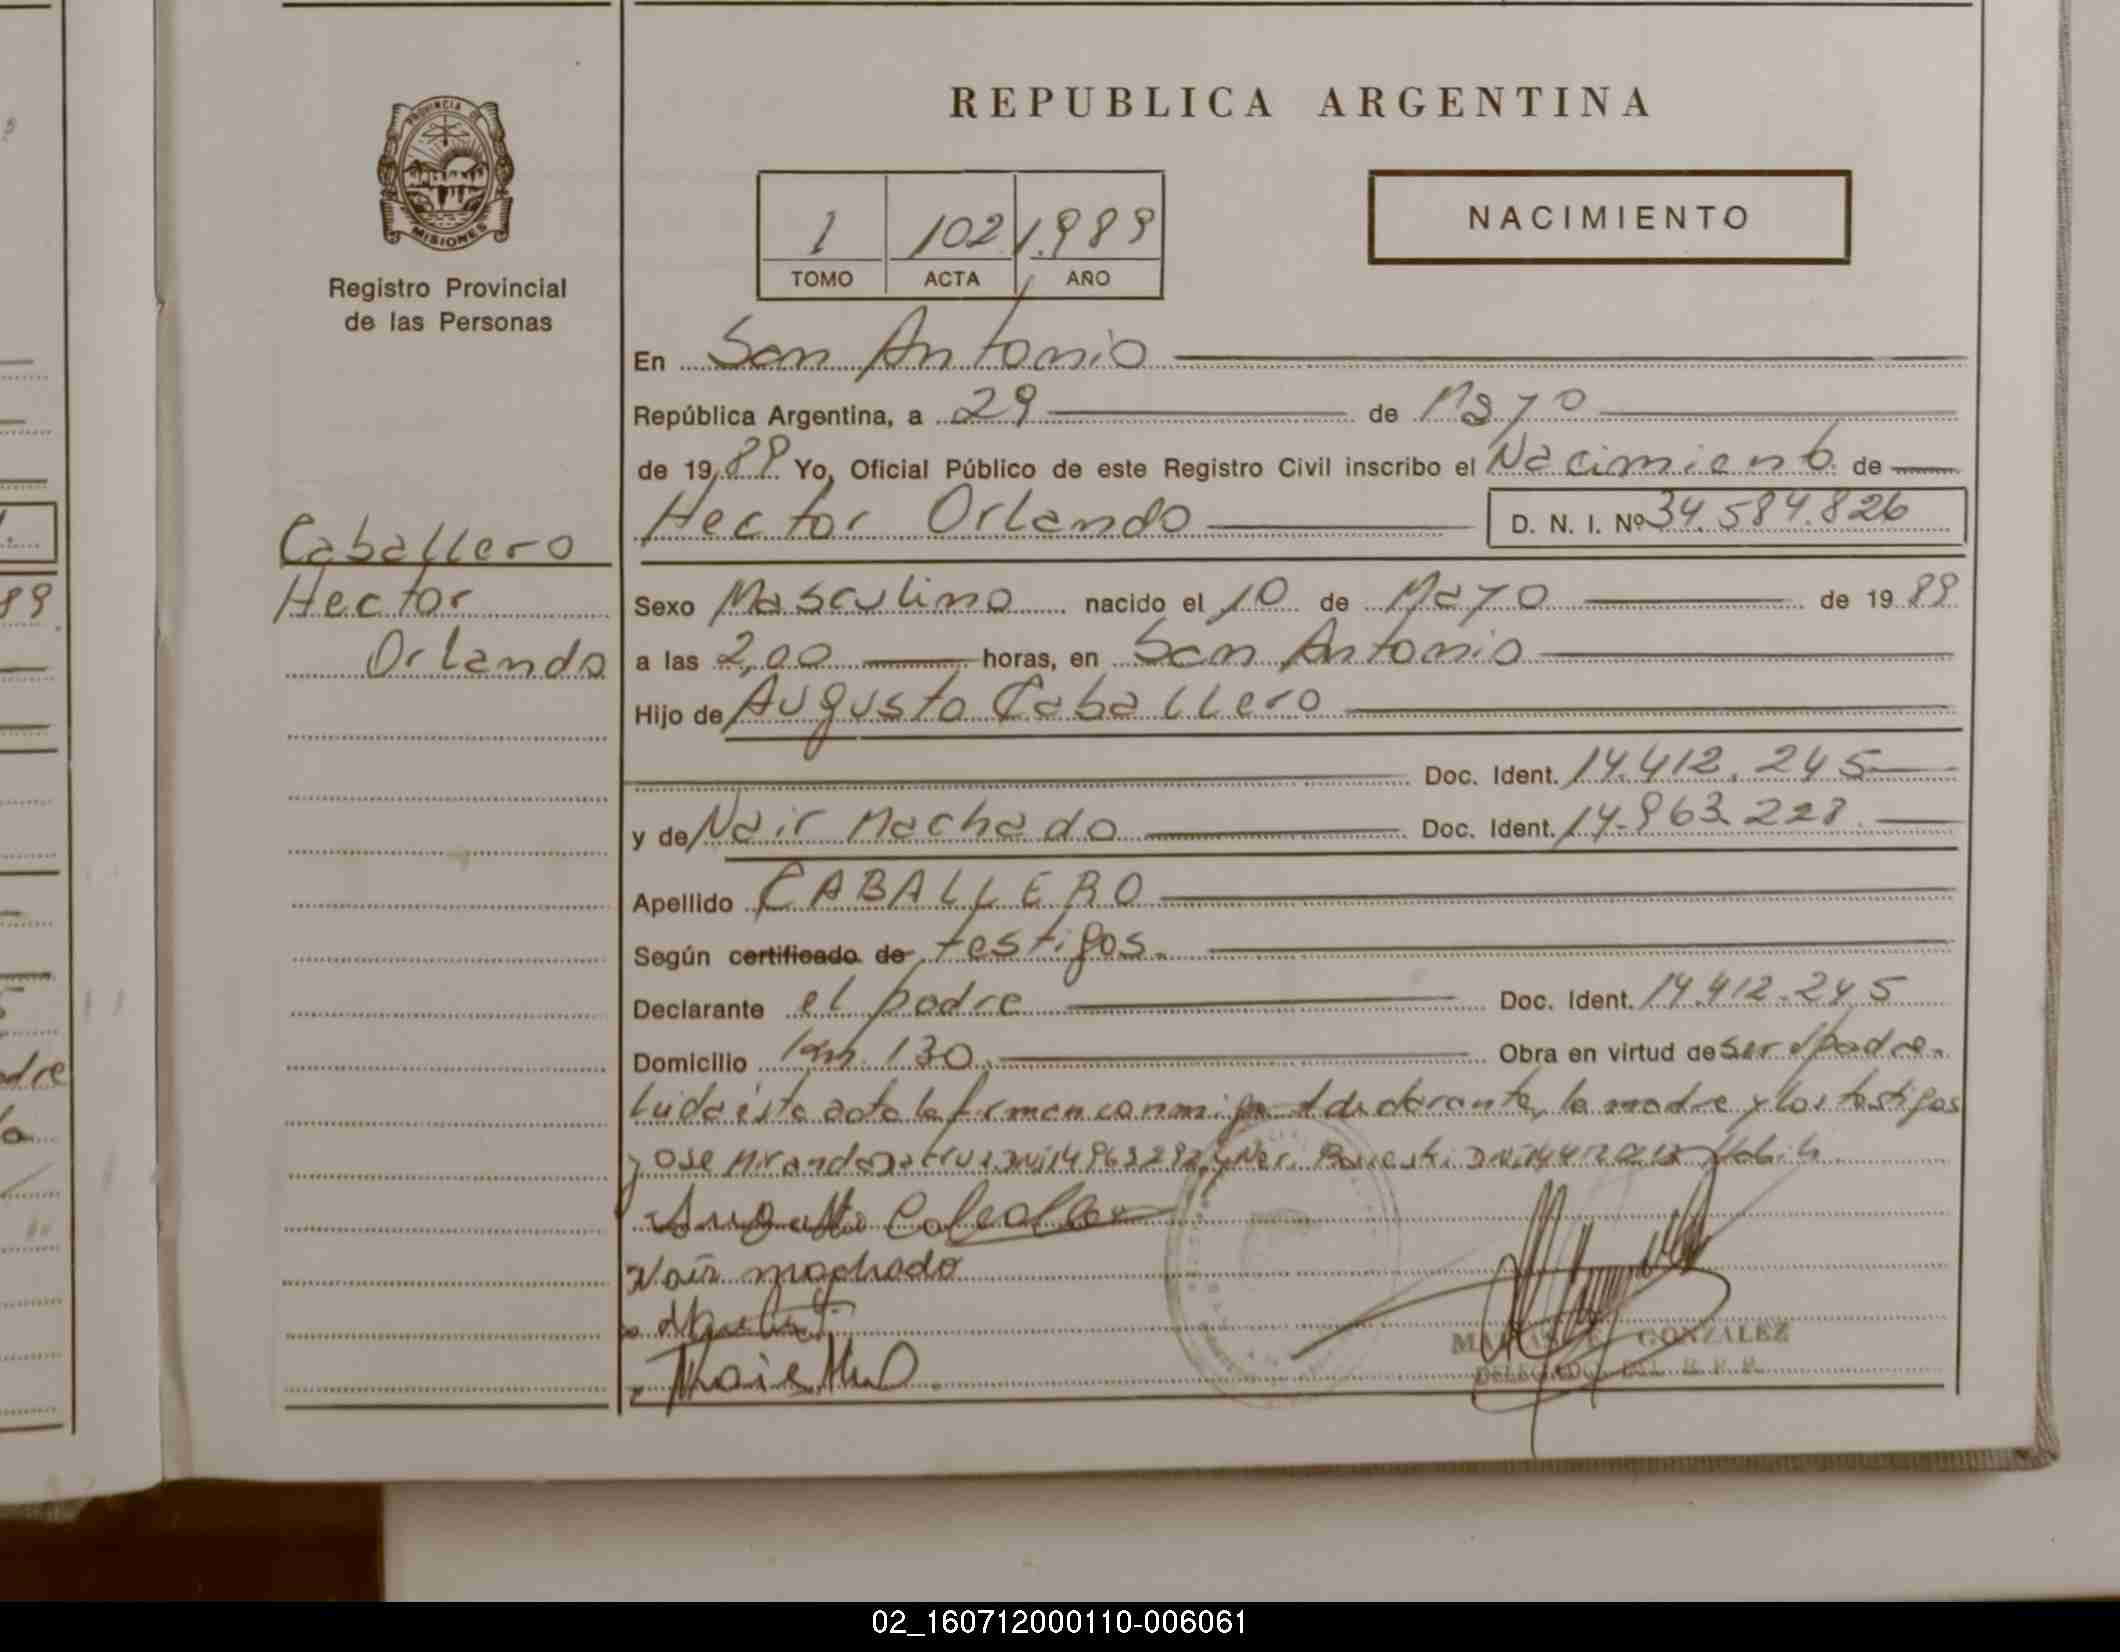 PROVINCIA DE
MISIONES
Registro Provincial
de las Personas
REPUBLICA ARGENTINA
1 102 1.989
TOMO ACTA AÑO
NACIMIENTO
En San Antonio
República Argentina, a 29 de Mayo
de 19 89 Yo, Oficial Público de este Registro Civil inscribo el Nacimiento de
Hector Orlando D. N. I. Nº 34.584.826
Caballero
Hector
Orlando
Sexo Masculino nacido el 10 de Mayo de 19 89
a las 2,00 horas, en San Antonio
Hijo de Augusto Caballero
Doc. Ident. 14.412.245
y de Nair Machado Doc. Ident. 14.963.228
Apellido CABALLERO
Según certificado de testigos.
Declarante el padre Doc. Ident. 14.412.245
Domicilio km. 130 Obra en virtud de ser el padre.
Luida ésta acta la firman conmigo el declarante, la madre y los testigos
Jose Miranda
Augusto Caballero
Nair machado
GONZALEZ
DELEGADO DEL R. P. P.
89
adre
02_160712000110-006061